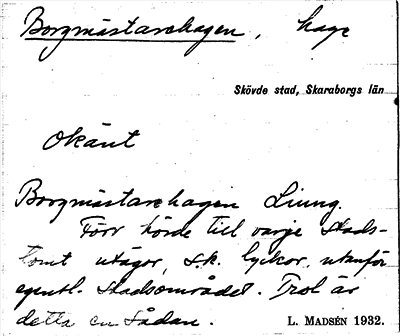 Borgmästarehagen, hage
Skövde stad, Skaraborgs län
Okänt
Borgmästarehagen Ljung.
Förr hörde till varje stads-
tomt utägor, s.k. lyckor, utanför
egentl. stadsområdet. Trol är
detta en sådan.
L. MADSÉN 1932.